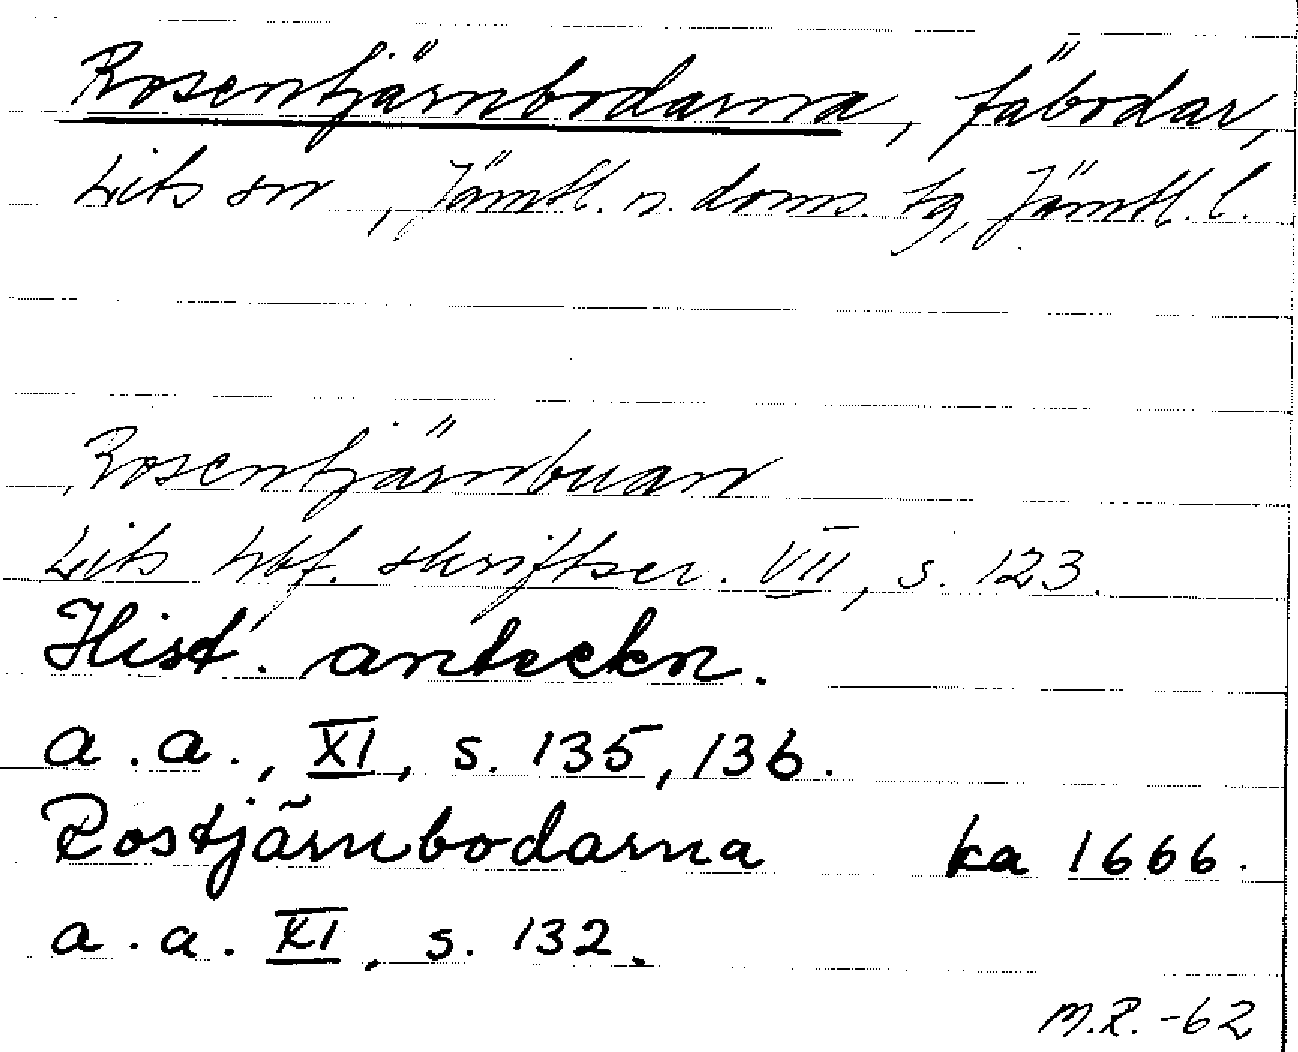 Rosentjärnbodarna, fäbodar,
Lits sn, Jämtl. n. doms. tg, Jämtl. l.
Rosentjärnbuan
Lits hbf. skriftser. VII, s. 123.
Hist. anteckn.
a.a., XI, s. 135, 136.
Rostjärnbodarna ka 1666.
a.a. XI, s. 132.
M.R. -62